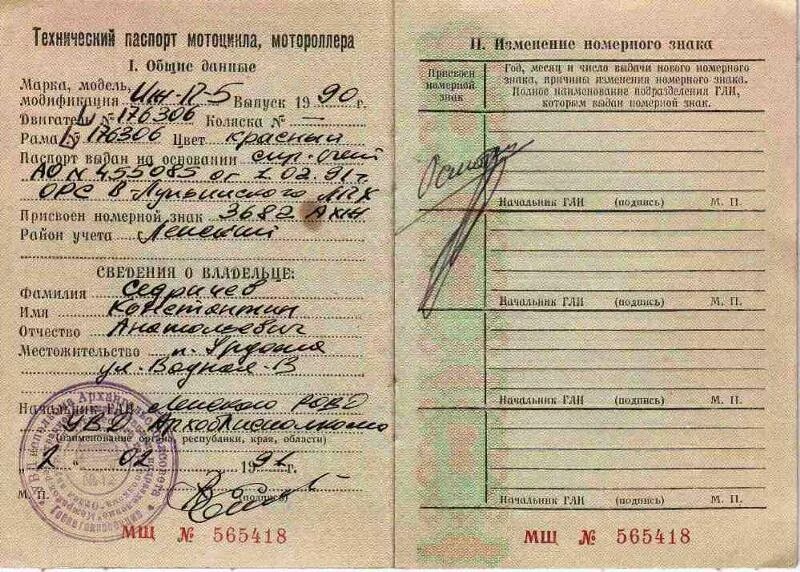 Технический паспорт мотоцикла, мотороллера
I. Общие данные
Марка, модель,
модификация Иж-П-5 Выпуск 1990 г.
Двигатель № 176306 Коляска № —
Рама № 176306 Цвет красный
Паспорт выдан на основании спр-счет
АО N 455085 от 1.02.91г
ОРС В-Лупьинского ЛПХ
Присвоен номерной знак 3682 АХН
Район учета Ленский
СВЕДЕНИЯ О ВЛАДЕЛЬЦЕ:
Фамилия Седричев
Имя Константин
Отчество Анатольевич
Местожительство п. Урдома
ул. Водная-В
Начальник ГАИ Ленского РОВД
УВД Архоблисполкома
(наименование органа республики, края, области)
"2" 02 1991 г.
М. П. (подпись)
МЩ № 565418
II. Изменение номерного знака
Присвоен номерной знак
Год, месяц и число выдачи нового номерного
знака, причины изменения номерного знака.
Полное наименование подразделения ГАИ,
которым выдан номерной знак.
Начальник ГАИ (подпись) М. П.
Начальник ГАИ (подпись) М. П.
Начальник ГАИ (подпись) М. П.
Начальник ГАИ (подпись) М. П.
МЩ № 565418